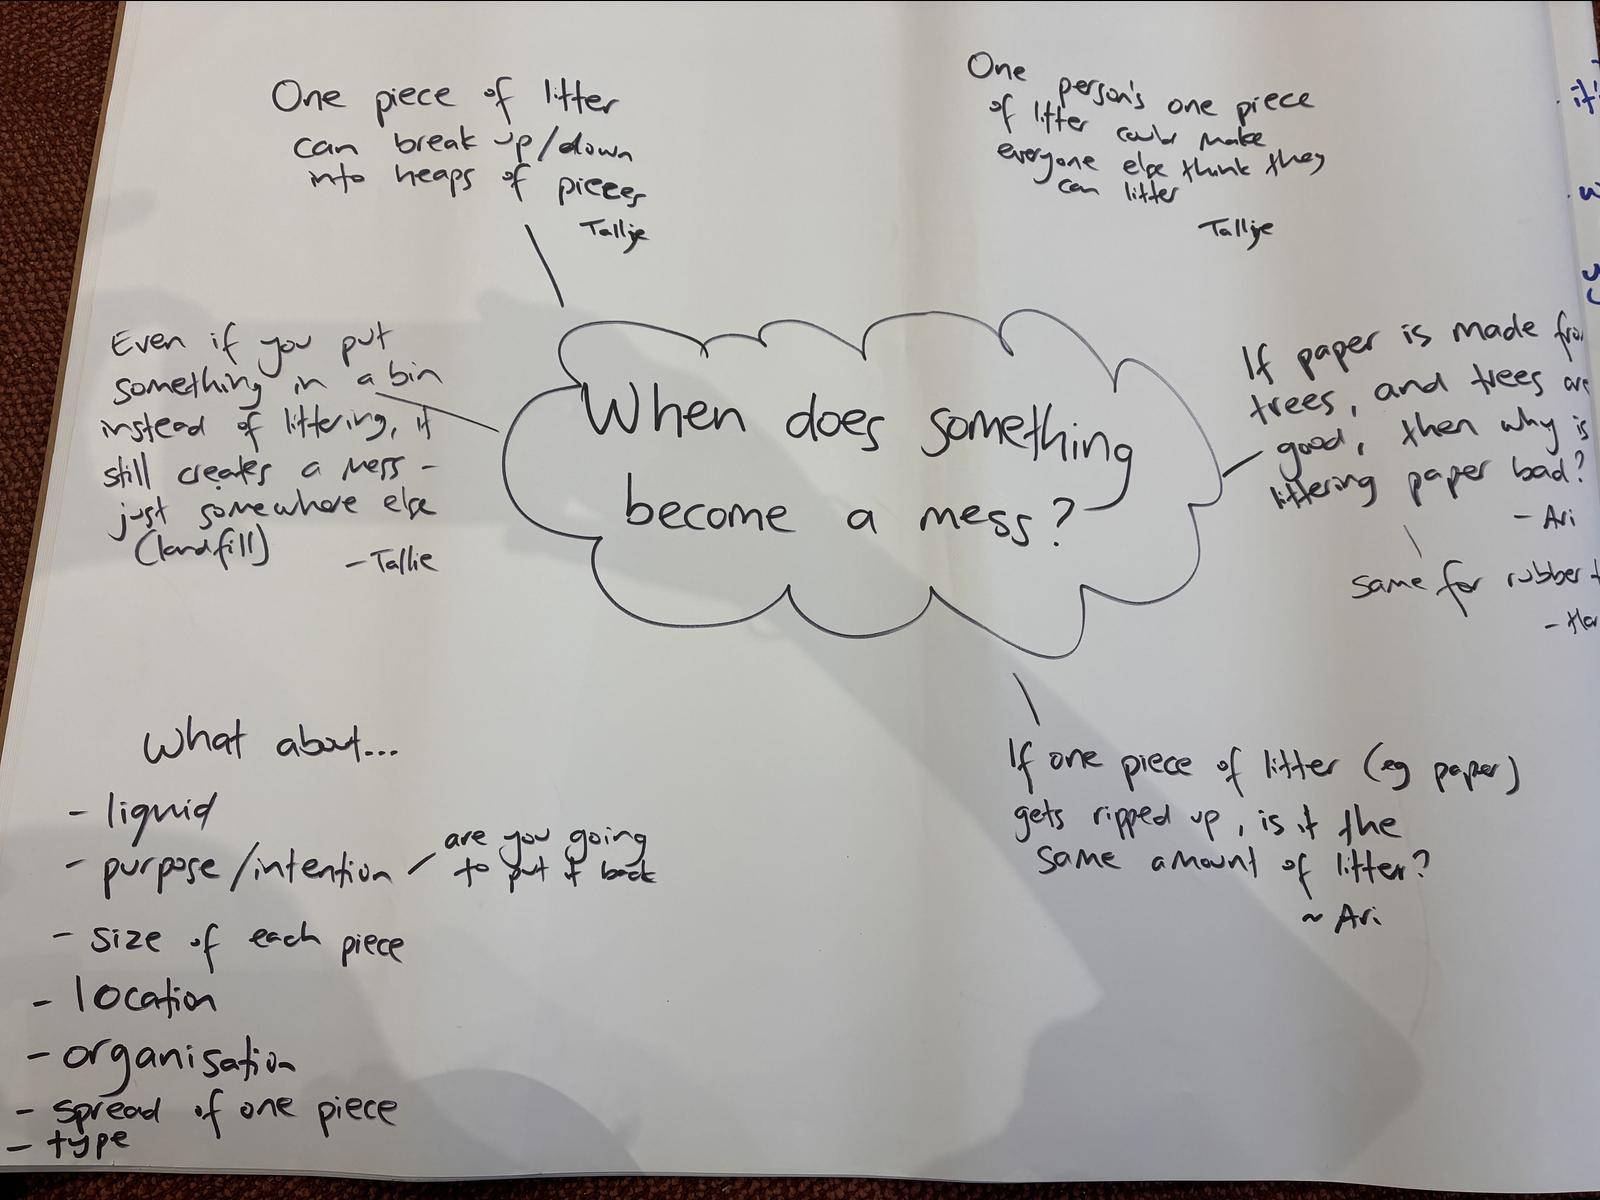 One piece of litter
can break up/down
into heaps of pieces
Tallie
One person's one piece
of litter could make
everyone else think they
can litter
Tallie
Even if you put
something in a bin
instead of littering, it
still creates a mess -
just somewhere else
(landfill)
- Tallie
When does something
become a mess?
If paper is made
trees, and trees are
good, then why is
littering paper bad?
- Ari
same for rubber
If one piece of litter (eg paper)
gets ripped up, is it the
same amount of litter?
~ Ari
What about...
- liquid
- purpose/intention
are you going
to put it back
- size of each piece
- location
- organisation
- spread of one piece
- type